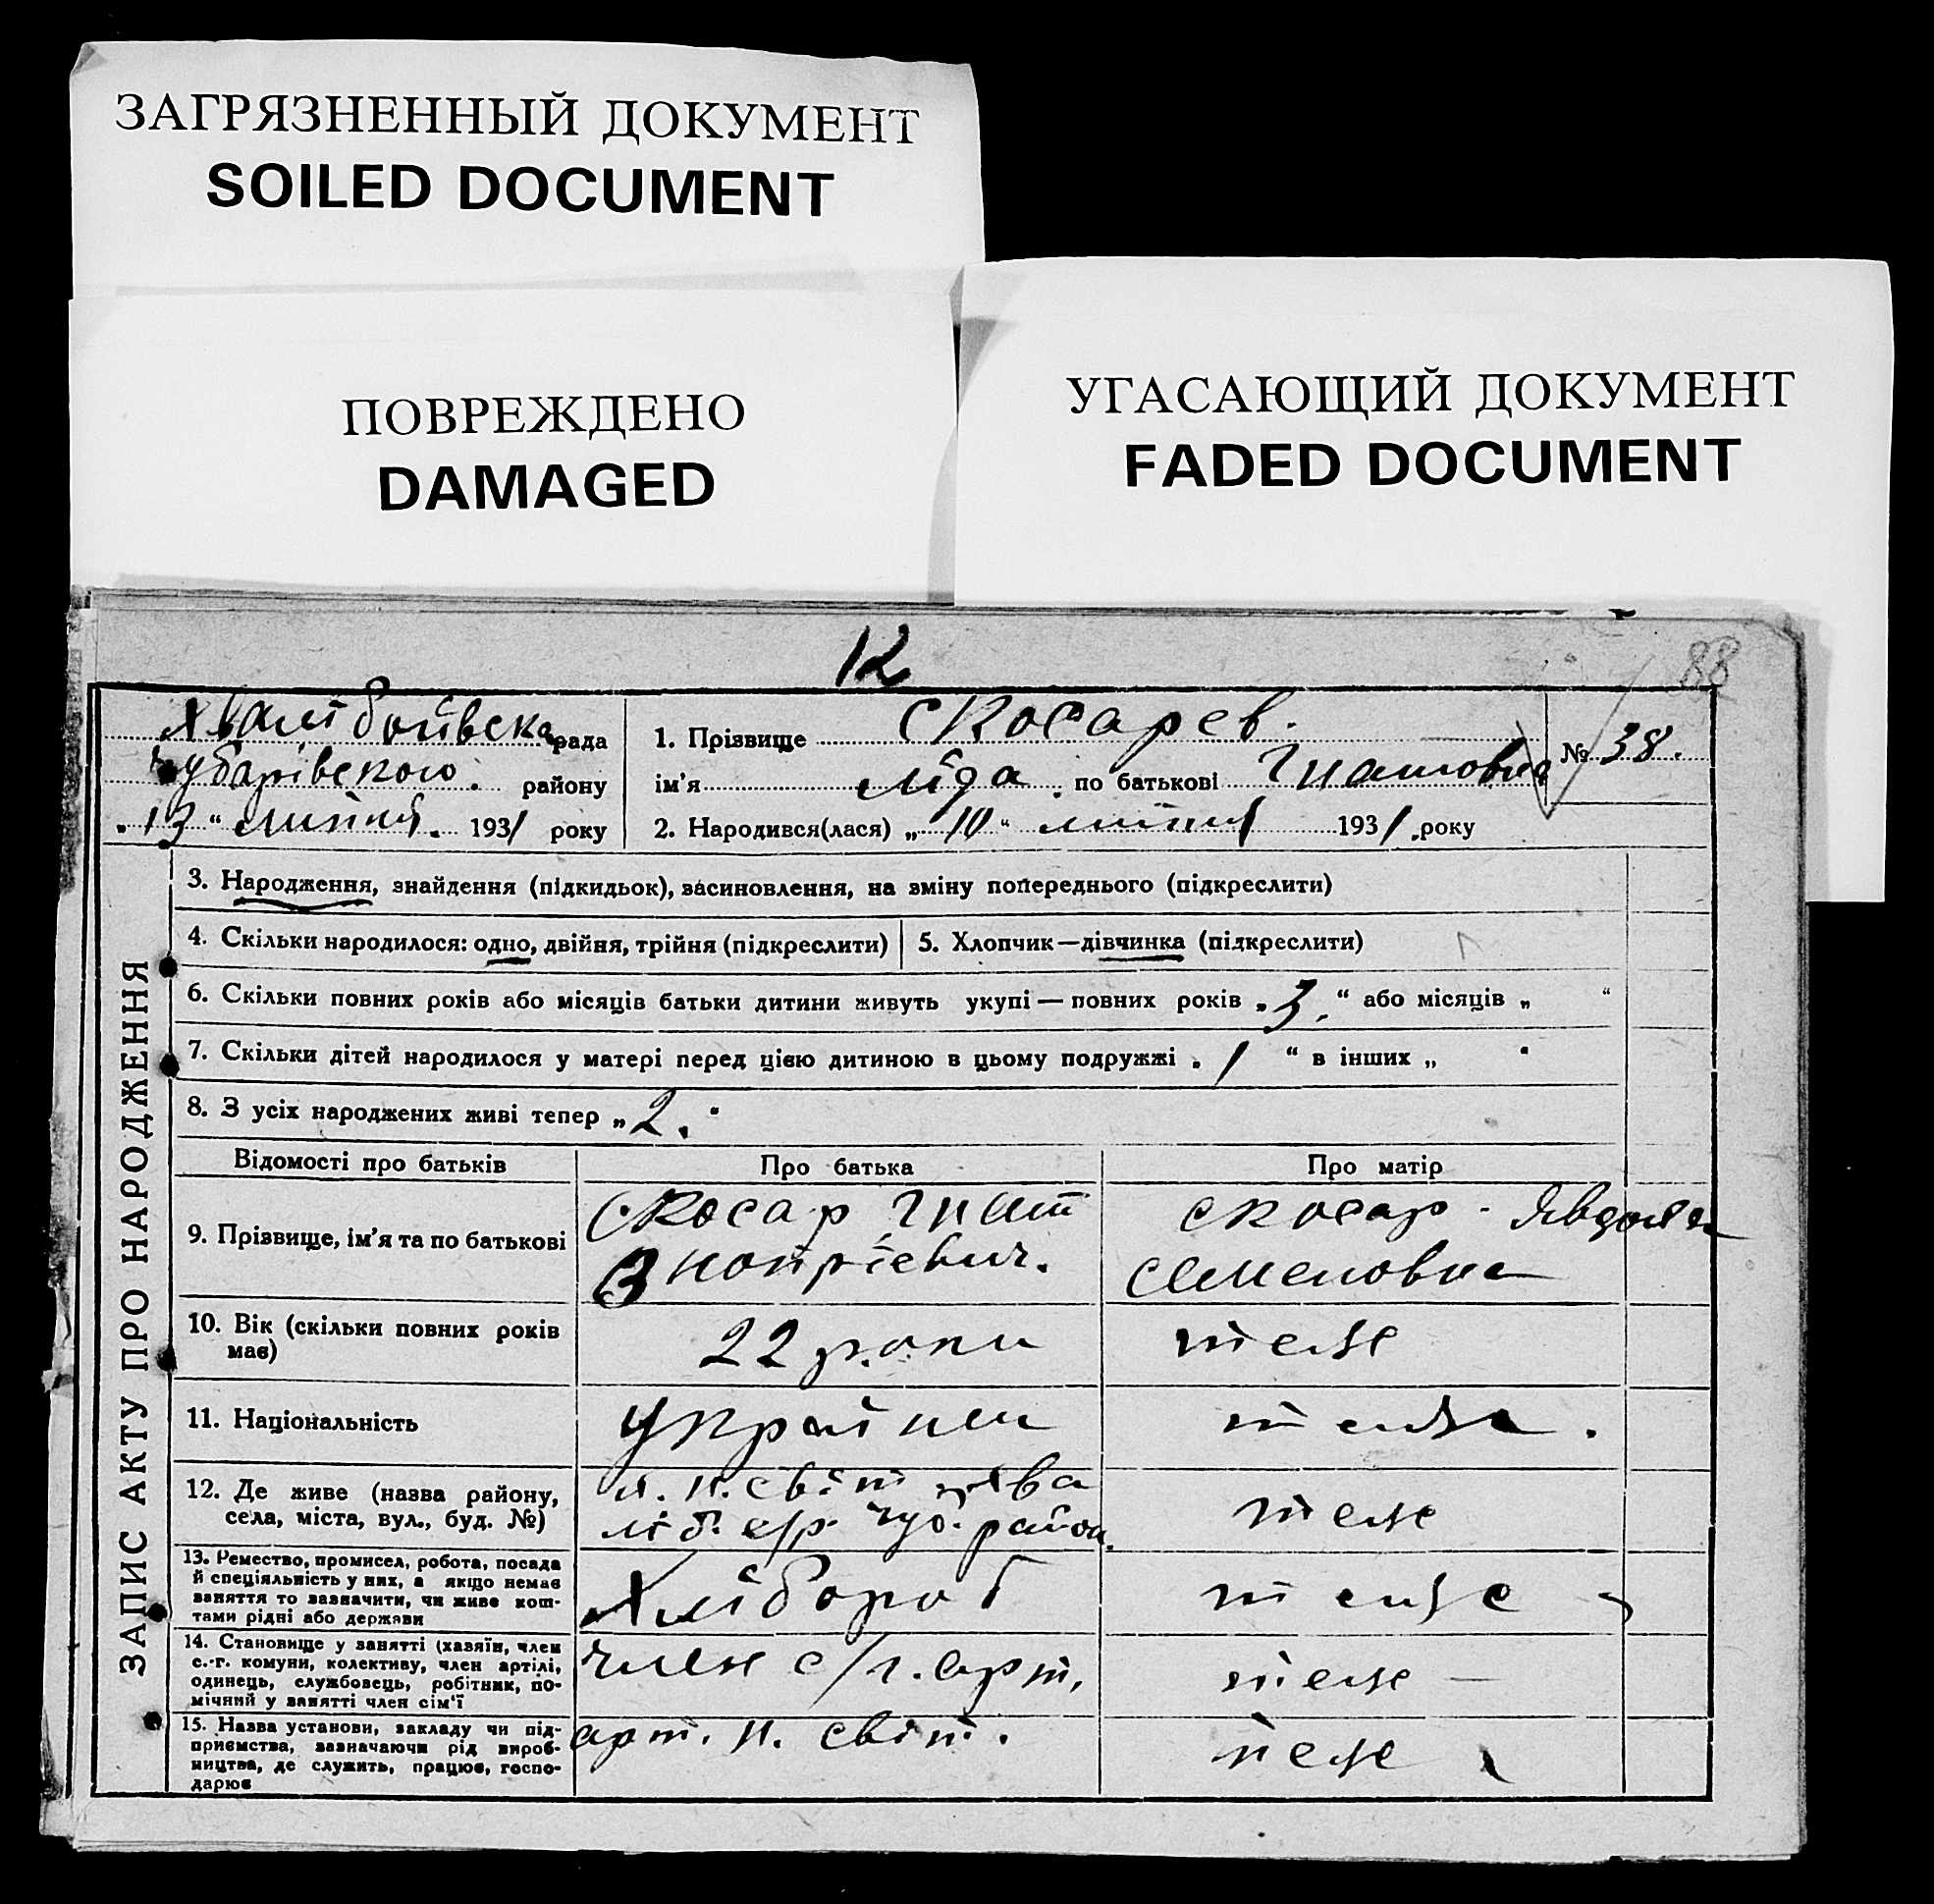 ЗАГРЯЗНЕННЫЙ ДОКУМЕНТ
SOILED DOCUMENT
ПОВРЕЖДЕНО
DAMAGED
УГАСАЮЩИЙ ДОКУМЕНТ
FADED DOCUMENT
12
88
Хвалібоївська рада
Чубарівського. району
„13“ липня. 1931 року
1. Прізвище Скосарев.
ім'я Ліда. по батькові Гнатовна
№ 38.
2. Народився(лася) „10“ липня 1931 року
ЗАПИС АКТУ ПРО НАРОДЖЕННЯ
3. Народження, знайдення (підкидьок), засиновлення, на зміну попереднього (підкреслити)
4. Скільки народилося: одно, двійня, трійня (підкреслити)
5. Хлопчик—дівчинка (підкреслити)
6. Скільки повних років або місяців батьки дитини живуть укупі — повних років „3.“ або місяців „ “
7. Скільки дітей народилося у матері перед цією дитиною в цьому подружжі „1“ в інших „ “
8. З усіх народжених живі тепер „2.“
Відомості про батьків
Про батька
Про матір
9. Прізвище, ім'я та по батькові
Скосар Гнат
Знопрієвич.
Скосар - Явдоха
Семеновна
10. Вік (скільки повних років має)
22 роки
теж
11. Національність
Українец
теж.
12. Де живе (назва району,
села, міста, вул., буд. №)
н. світ Хва
ліб. с/р. Чуб. район.
теже
13. Ремество, промисел, робота, посада
й спеціяльність у них, а якщо немає
заняття то зазначити, чи живе кош-
тами рідні або держави
Хлібороб
теже
14. Становище у занятті (хазяїн, член
с.-г. комуни, колективу, член артілі,
одинець, службовець, робітник, по-
мічний у занятті член сім'ї
член с/г. арт.
теже —
15. Назва установи, закладу чи під-
приємства, зазначаючи рід вироб-
ництва, де служить, працює, госпо-
дарює
арт. н. світ.
теже